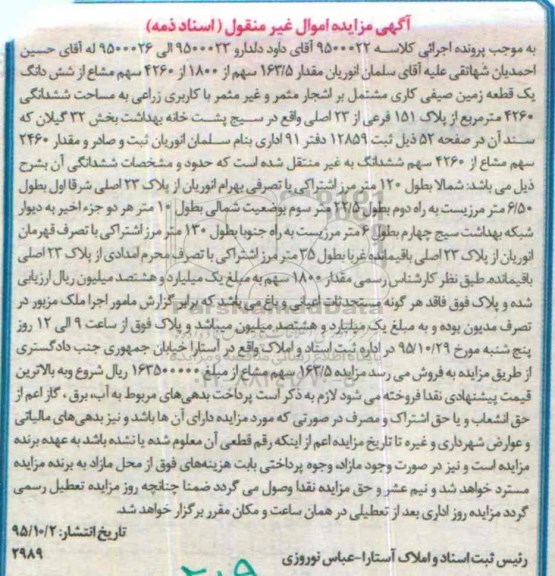 آگهی مزایده اموال غیر منقول ( اسناد ذمه)
به موجب پرونده اجرائی کلاسه ۹۵۰۰۰۲۲ آقای داود دلدارو ۹۵۰۰۰۲۳ الی ۹۵۰۰۰۲۶ له آقای حسین
احمدیان شهانقی علیه آقای سلمان انوریان مقدار ۱۶۳/۵ سهم از ۱۸۰۰ از ۴۲۶۰ سهم مشاع از شش دانگ
یک قطعه زمین صیفی کاری مشتمل بر اشجار مثمر و غیر مثمر با کاربری زراعی به مساحت ششدانگی
۴۲۶۰ مترمربع از پلاک ۱۵۱ فرعی از ۲۳ اصلی واقع در سیج پشت خانه بهداشت بخش ۳۲ گیلان که
سند آن در صفحه ۵۲ ذیل ثبت ۱۲۸۵۹ دفتر ۹۱ اداری بنام سلمان انوریان ثبت و صادر و مقدار ۲۴۶۰
سهم مشاع از ۴۲۶۰ سهم ششدانگ به غیر منتقل شده است که حدود و مشخصات ششدانگی آن بشرح
ذیل می باشد: شمالا بطول ۱۲۰ متر مرز اشتراکی با تصرفی بهرام انوریان از پلاک ۲۳ اصلی شرقا اول بطول
۶/۵۰ متر مرزیست به راه دوم بطول ۲۲/۵ متر سوم بوضعیت شمالی بطول ۱۰ متر هر دو جزء اخیر به دیوار
شبکه بهداشت سیج چهارم بطول ۶متر مرزیست به راه جنوبا بطول ۱۳۰ متر مرز اشتراکی با تصرف قهرمان
انوریان از پلاک ۲۳ اصلی باقیمانده غربا بطول ۳۵ متر مرز اشتراکی با تصرف محرم امدادی از پلاک ۲۳ اصلی
باقیمانده. طبق نظر کارشناس رسمی مقدار ۱۸۰۰ سهم به مبلغ یک میلیارد و هشتصد میلیون ریال ارزیابی
شده و پلاک فوق فاقد هر گونه مستحدثات اعیانی و باغ می باشد که برابر گزارش مامور اجرا ملک مزبور در
تصرف مدیون بوده و به مبلغ یک میلیارد و هشتصد میلیون میباشد و پلاک فوق از ساعت ۹ الی ۱۲ روز
پنج شنبه مورخ ۹۵/۱۰/۲۹ در اداره ثبت اسناد و املاک واقع در آستارا خیابان جمهوری جنب دادگستری
از طریق مزایده به فروش می رسد مزایده ۱۶۳/۵ سهم مشاع از مبلغ ۱۶۳۵۰۰۰۰۰ ریال شروع وبه بالاترین
قیمت پیشنهادی نقدا فروخته می شود لازم به ذکر است پرداخت بدهی های مربوط به آب، برق ، گاز اعم از
حق انشعاب و یا حق اشتراک و مصرف در صورتی که مورد مزایده دارای آن ها باشد و نیز بدهی های مالیاتی
و عوارض شهرداری و غیره تا تاریخ مزایده اعم از اینکه رقم قطعی آن معلوم شده یا نشده باشد به عهده برنده
مزایده است و نیز در صورت وجود مازاد، وجوه پرداختی بابت هزینه های فوق از محل مازاد به برنده مزایده
مسترد خواهد شد و نیم عشر و حق مزایده نقدا وصول می گردد ضمنا چنانچه روز مزایده تعطیل رسمی
گردد مزایده روز اداری بعد از تعطیلی در همان ساعت و مکان مقرر برگزار خواهد شد.
تاریخ انتشار: ۹۵/۱۰/۲
۲۹۸۹
رئیس ثبت اسناد و املاک آستارا-عباس نوروزی